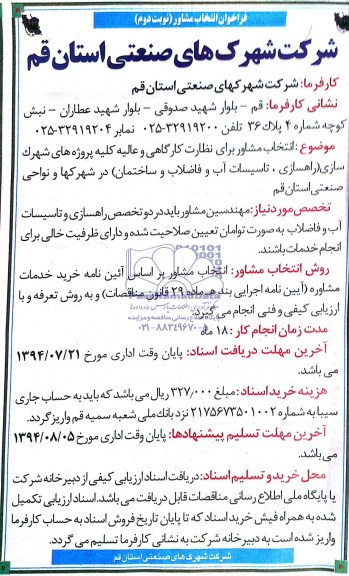 فراخوان انتخاب مشاور (نوبت دوم)
شرکت شهرک های صنعتی استان قم
کارفرما: شرکت شهرکهای صنعتی استان قم
نشانی کارفرما: قم – بلوار شهید صدوقی – بلوار شهید عطاران – نبش
کوچه شماره ۴ پلاک ۳۶ تلفن ۳۲۹۱۹۲۰۰-۰۲۵ نمابر ۳۲۹۱۹۲۰۴-۰۲۵
موضوع: انتخاب مشاور برای نظارت کارگاهی و عالیه کلیه پروژه های شهرک
سازی (راهسازی ، تاسیسات آب و فاضلاب و ساختمان) در شهرکها و نواحی
صنعتی استان قم
تخصص مورد نیاز: مهندسین مشاور باید در دو تخصص راهسازی و تاسیسات
آب و فاضلاب به صورت توامان تعیین صلاحیت شده و دارای ظرفیت خالی برای
انجام خدمات باشند.
روش انتخاب مشاور: انتخاب مشاور بر اساس آئین نامه خرید خدمات
مشاوره (آیین نامه اجرایی بند هـ ماده ۲۹ قانون مناقصات) و به روش تعرفه و با
ارزیابی کیفی و فنی انجام می گیرد.
مدت زمان انجام کار: ۱۸ ماه
۰۲۱-۸۸۳۴۹۶۷۰
آخرین مهلت دریافت اسناد: پایان وقت اداری مورخ ۱۳۹۴/۰۷/۲۱
می باشد.
هزینه خرید اسناد: مبلغ ۳۲۷,۰۰۰ ریال می باشد که باید به حساب جاری
سیبا به شماره ۲۱۷۵۶۷۳۵۰۱۰۰۲ نزد بانک ملی شعبه سمیه قم واریز گردد.
آخرین مهلت تسلیم پیشنهادها: پایان وقت اداری مورخ ۱۳۹۴/۰۸/۰۵
می باشد.
محل خرید و تسلیم اسناد: دریافت اسناد ارزیابی کیفی از دبیرخانه شرکت
یا پایگاه ملی اطلاع رسانی مناقصات قابل دریافت می باشد. اسناد ارزیابی تکمیل
شده به همراه فیش خرید اسناد که تا پایان تاریخ فروش اسناد به حساب کارفرما
واریز شده است به دبیرخانه شرکت به نشانی کارفرما تسلیم می گردد.
شرکت شهرک های صنعتی استان قم